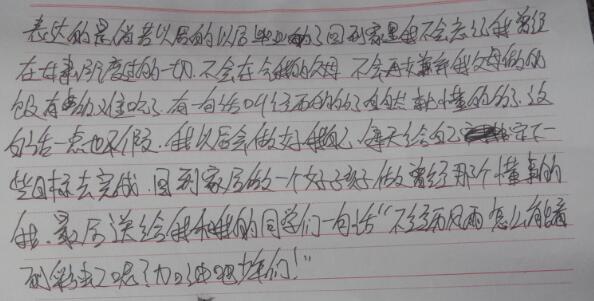 表达的是借着以后的以后毕业的了回到家里我不会忘记我曾经
在女事所度过的一切.不会在令我的父母 不会再去兼弃我父母做的的
饭有多的难吃了.有一句话叫经历的多了自然就懂的多了.这
句话一点也不假.我以后会做好我自己.每天给自己定下一
些目标去完成.回到家后做一个好孩子做曾经那个懂事的
我.最后送给我和我的同学们一句话“不经历风雨怎么能看
到彩虹了呢?加油吧少年们!”